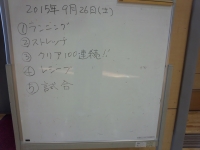 2015年9月26日(土)
①ランニング
②ストレッチ
③クリア100連続
④
⑤試合